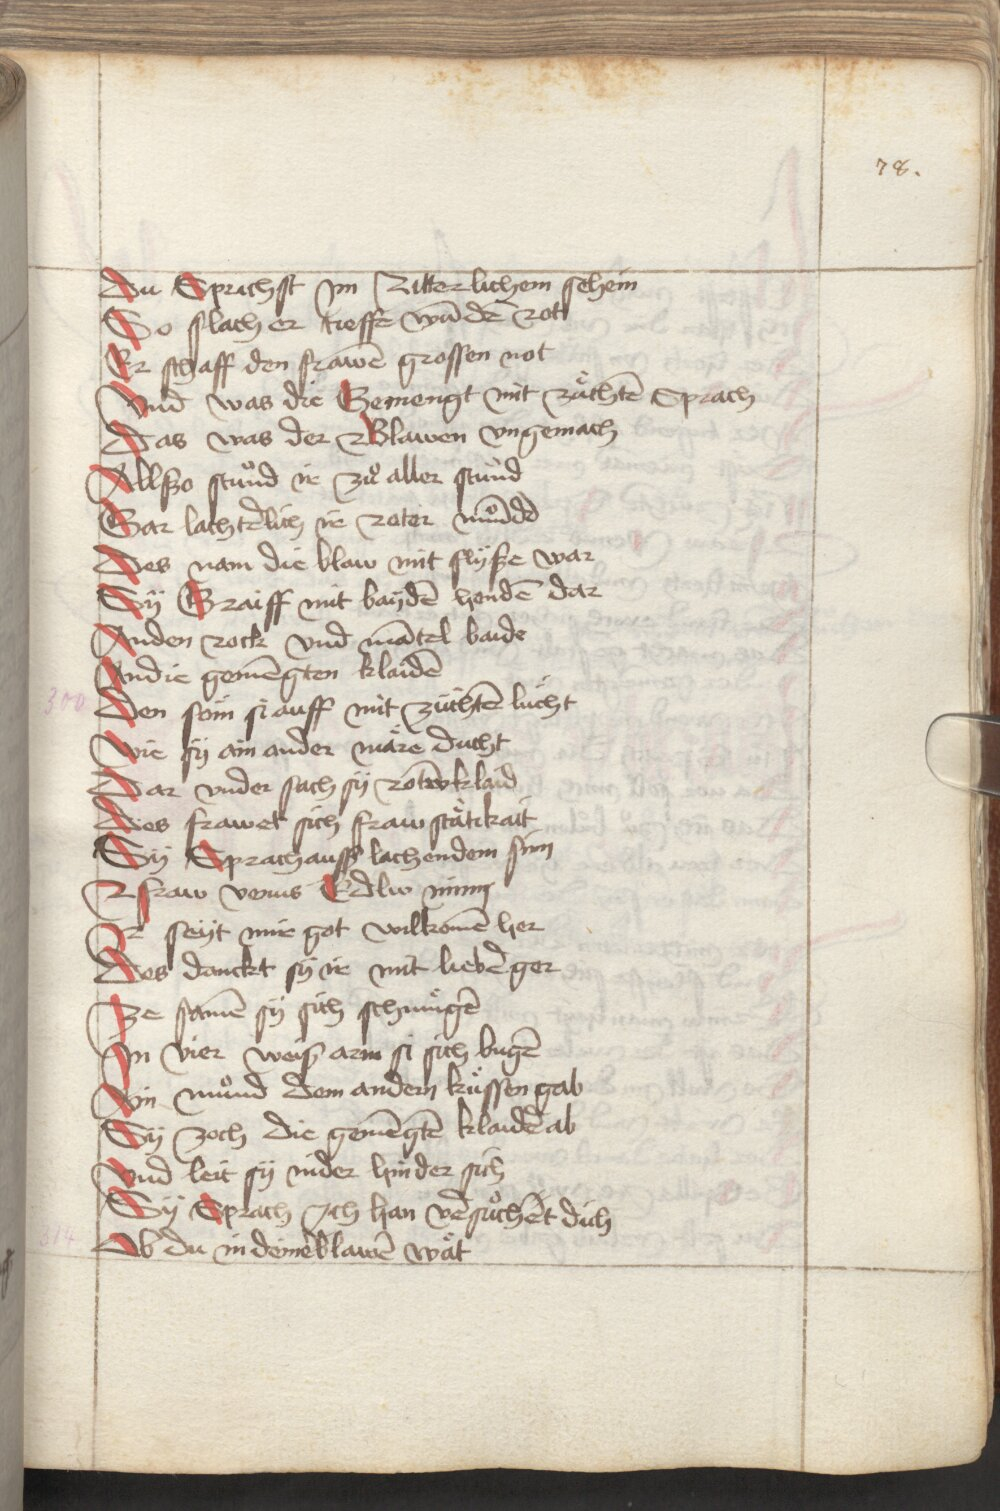 78.
Du Sprichst Im Ritterlichem schein
So slach er tieffe wūdē rot
Er schaff den frawē grossen not
Vnd was die Gemengt mit züchtē Sprach
Das was der Blawen vngemach
Allßo stuͦnd ir zuͦ aller stund
Gar lachterlich ir roter
Des nam die blaw mit flyße war
Sÿ Graiff mit baÿdē hendē dar
An den rock vnd mātel baide
An die gemēgten klaidē
300
Den soim si auff mit züchtē lücht
Wie sÿ ain ander märe ducht
Dar vnder sach sÿ rotēw klaid
Des frawet sich fraw stätikait
Sÿ Sprach auß lachendem sin
fraw venus Edlw minn
Ir seyt mir got wilkomē her
Des danckt sÿ ir mit liebē ger
Ze samē sÿ sich schmugē
In vier weiß arm si sich bugē
Ain muͦnd dem andern küssen gab
Sÿ zoch die gemēgtē klaidē ab
Vnd leit sÿ nider hinder sich
Sÿ Sprach Ich han v̄suͦchet dich
314
Ob du in deinē blawē wät